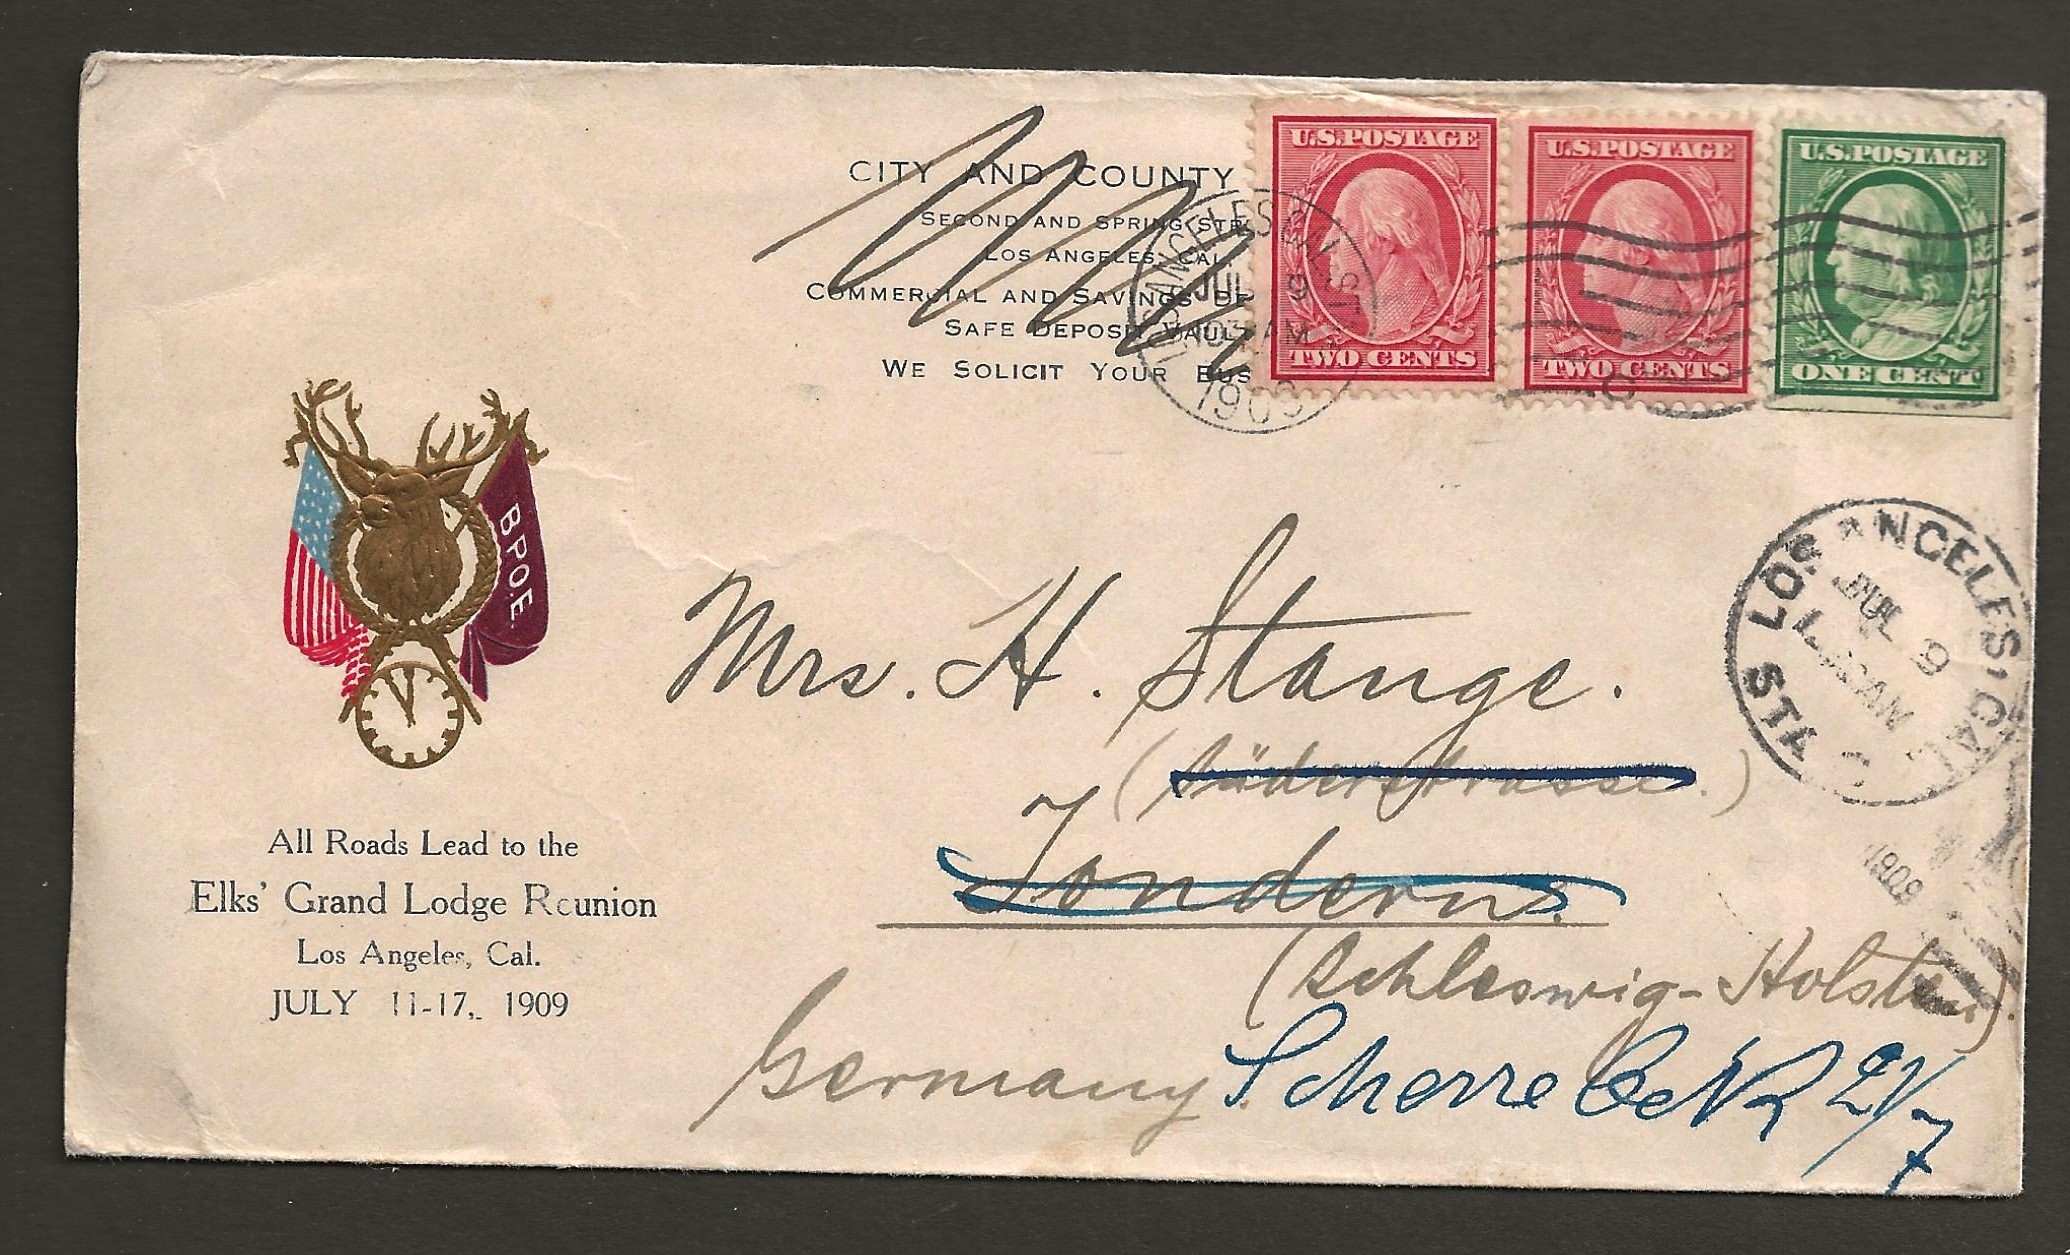 CITY AND COUNTY
SECOND AND SPRING STR
LOS ANGELES, CAL.
COMMERCIAL AND SAVINGS DE
SAFE DEPOSIT VAULT
WE SOLICIT YOUR BUS
U.S. POSTAGE
TWO CENTS
U.S. POSTAGE
TWO CENTS
U.S. POSTAGE
ONE CENT
LOS ANGELES CAL. ST
JUL 9
AM
1909
BPO.E
LOS ANGELES, CAL.
JUL 9
AM
STA C
1909
Mrs. H. Stange.
(Süderstrasse.)
Tondern.
(Schleswig-Holstein).
Germany.
Scherrebek
All Roads Lead to the
Elks' Grand Lodge Reunion
Los Angeles, Cal.
JULY 11-17, 1909